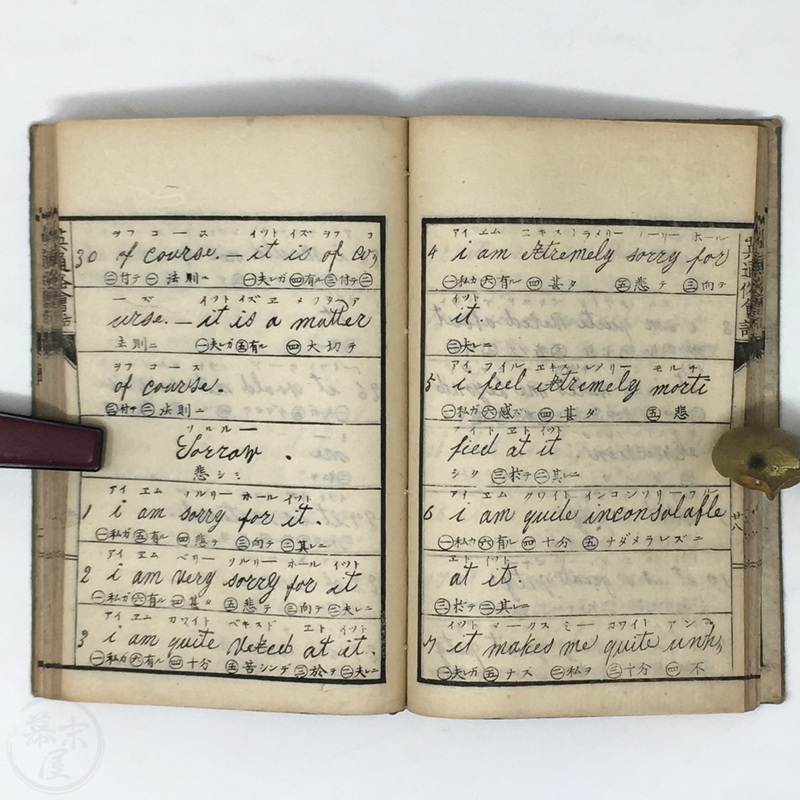 ヲフ コース イット イズ ヲフ コ
30 of course. — it is of co,
㊂付テ ㊀法則ニ ㊀夫レガ ㊃有ル ㊂付テ ㊁
ース イットイズ エ メッタア
urse. — it is a matter
法則ニ ㊀夫レガ ㊄有ル ㊃大切テ
ヲフ コース
of course.
㊂付テ ㊁法則ニ
ソルルー
Sorrow.
悲シミ
アイ エム ソルリー ホール イット
1 i am sorry for it.
㊀私ガ ㊄有ル ㊃悲テ ㊂向テ ㊁其レニ
アイ エム ベリー ソルリー ホール イット
2 i am very sorry for it
㊀私ガ ㊅有ル ㊃甚タ ㊄悲テ ㊂向テ ㊁夫レニ
アイ エム カワイト ベキスド エト イット
3 i am quite vexed at it.
㊀私ガ ㊅有ル ㊃十分 ㊄苦シンデ ㊂於テ ㊁夫レニ
アイ エム エキストラメリー ソーリー ホール
4 i am extremely sorry for
㊀私ガ ㊅有ル ㊃甚タ ㊄悲テ ㊂向テ
イット
it.
㊁夫レニ
アイ フイル エキストレメリー モルチ
5 i feel extremely morti
㊀私ガ ㊅感ズ ㊃甚タ ㊄悲
アイド エト イット
fied at it
シク ㊂於テ ㊁其レニ
アイ エム クワイト インコンソリーブル
6 i am quite inconsolafle
㊀私ガ ㊅有ル ㊃十分 ㊄ナダメラレズニ
エト イット
at it.
㊂於テ ㊁其レニ
イット メークス ミー カワイト アンハ
7 it makes me quite unh,
㊀夫レガ ㊄ナス ㊁私ヲ ㊂十分 ㊃不
廿八
幕末屋